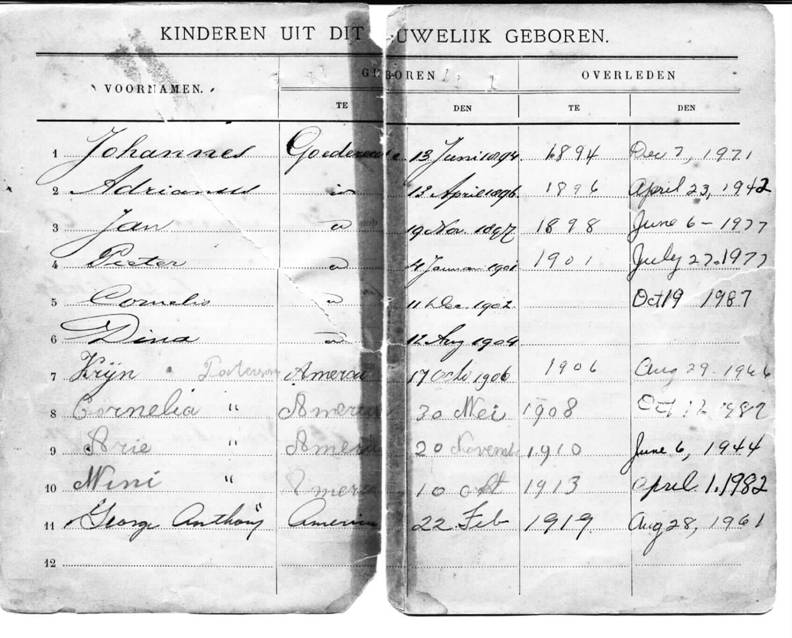 KINDEREN UIT DIT UWELIJK GEBOREN.
VOORNAMEN. GEBOREN OVERLEDEN
TE DEN TE DEN
1 Johannes Goedere 13 Juni 1894 1894 Dec 7, 1971
2 Adrianus 12 April 1896 1896 April 23, 1942
3 Jan 19 Nov. 1897 1898 June 6 - 1977
4 Pieter 4 1901 1901 July 27. 1977
5 Cornelis 11 Dec 1902 Oct 19 1987
6 Dina 12 Aug 1904
7 Krijn Paterson Ameri 17 Octo 1906 1906 Aug 29. 1966
8 Cornelia " Ameri 30 Mei 1908 Oct
9 Arie " Ameri 20 Novemb 1910 June 6, 1944
10 Nini " Ameri 10 Oct 1913 April. 1. 1982
11 George Anthony Ameri 22 Feb 1919 Aug 28, 1961
12